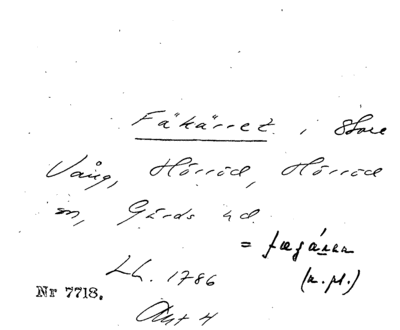 Fäkärret i Store
Vång, Hörröd, Hörröd
sn, Gärds hd.
= fægárra
(n. pl.)
Lh. 1786
Nr 7718.
Akt 4